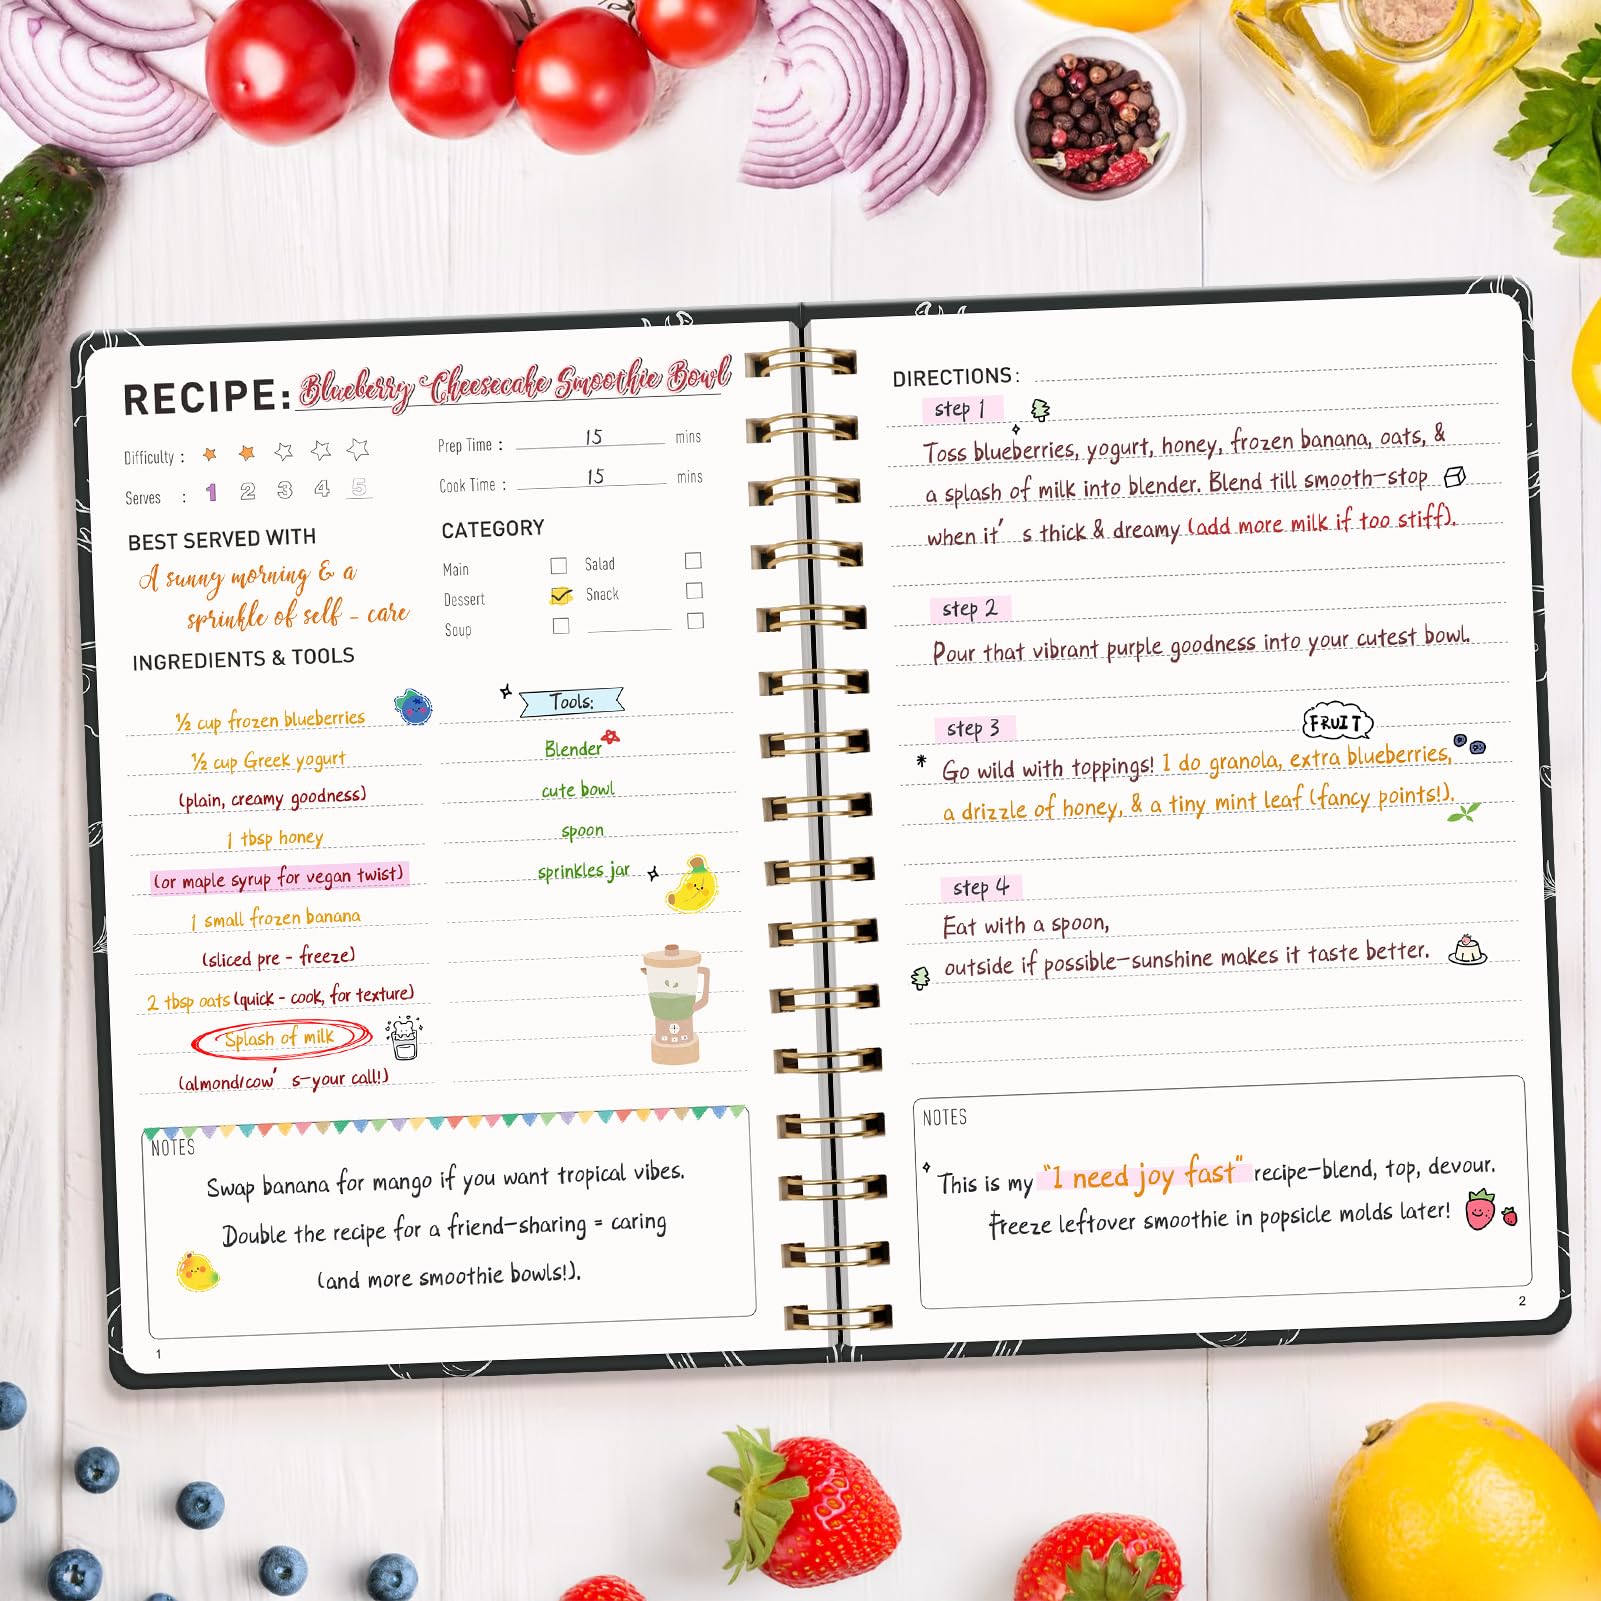 RECIPE: Blueberry Cheesecake Smoothie Bowl
Difficulty :
Serves : 1 2 3 4 5
Prep Time : 15 mins
Cook Time : 15 mins
BEST SERVED WITH
A sunny morning & a
sprinkle of self - care
CATEGORY
Main Salad
Dessert Snack
Soup
INGREDIENTS & TOOLS
½ cup frozen blueberries
½ cup Greek yogurt
(plain, creamy goodness)
1 tbsp honey
(or maple syrup for vegan twist)
1 small frozen banana
(sliced pre - freeze)
2 tbsp oats (quick - cook, for texture)
Splash of milk
(almond/cow' s-your call!)
Tools:
Blender
cute bowl
spoon
sprinkles jar
NOTES
Swap banana for mango if you want tropical vibes.
Double the recipe for a friend-sharing = caring
(and more smoothie bowls!).
1
DIRECTIONS:
step 1
Toss blueberries, yogurt, honey, frozen banana, oats, &
a splash of milk into blender. Blend till smooth-stop
when it' s thick & dreamy (add more milk if too stiff).
step 2
Pour that vibrant purple goodness into your cutest bowl.
step 3
FRUIT
* Go wild with toppings! I do granola, extra blueberries,
a drizzle of honey, & a tiny mint leaf (fancy points!).
step 4
Eat with a spoon,
outside if possible-sunshine makes it taste better.
NOTES
This is my "I need joy fast" recipe-blend, top, devour.
Freeze leftover smoothie in popsicle molds later!
2